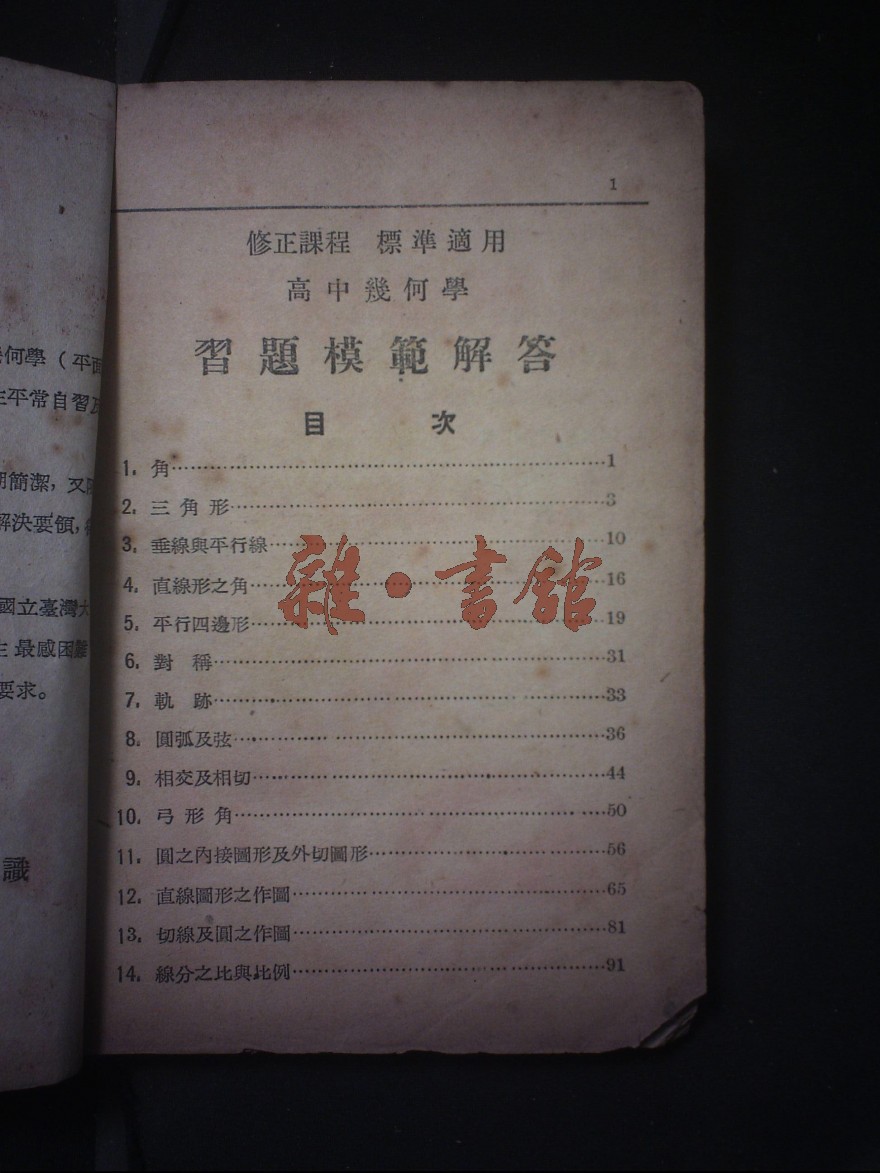 何學（平面
平常自習及
簡潔，又
解決要領，
國立臺灣大
最感困難
要求。
識
1
修正課程 標準適用
高中幾何學
習題模範解答
目 次
1. 角……1
2. 三角形……3
3. 垂線與平行線……10
4. 直線形之角……16
5. 平行四邊形……19
6. 對稱……31
7. 軌跡……33
8. 圓弧及弦……36
9. 相交及相切……44
10. 弓形角……50
11. 圓之內接圖形及外切圖形……56
12. 直線圖形之作圖……65
13. 切線及圓之作圖……81
14. 線分之比與比例……91
雜·書館